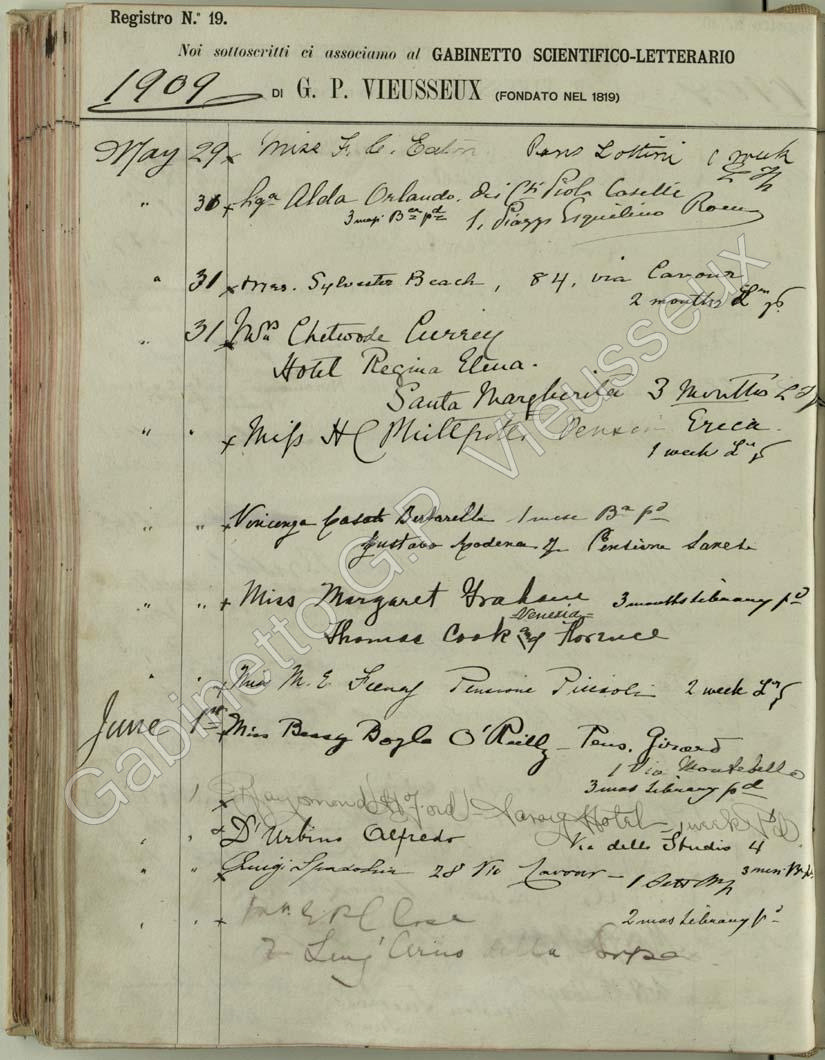 Registro N.° 19.
Noi sottoscritti ci associamo al GABINETTO SCIENTIFICO-LETTERARIO
1909
DI G. P. VIEUSSEUX (FONDATO NEL 1819)
May 29 x Miss F. C. Eaton Pens Lottini 1 week
" 30 x Alda Orlando. dei Piola Caselli
3 mesi 1, Piazza Esquilino Roma
" 31 x Mrs. Sylvester Beach, 84, via Cavour
2 months
" 31 x Mrs Chetwode Currey
Hotel Regina Elena.
Santa Margherita 3 Months
" " x Miss H C Phillpotts Pension Erica.
1 week
" " x Vincenza Casati Bertarelli 1 mese Ba pd
Gustavo Modena Pensione Sanesi
" " x Miss Margaret Graham 3 months Library pd
Venezia
Thomas Cook and Florence
" " x Miss M. E. Pensione Piccioli 2 week
June 1st x Miss Bessy Boyle O'Reilly - Pens. Girard
1 Via Montebello
3 mos Library pd
1 x Raymond H Ford - Savoy Hotel - 1 week Pd.
" " x D'Urbino Alfredo Via dello Studio 4
" " x Luigi 28 Via Cavour - 3 mesi
" " x 2 mos Library pd
Lung' Arno della
Gabinetto G.P. Vieusseux